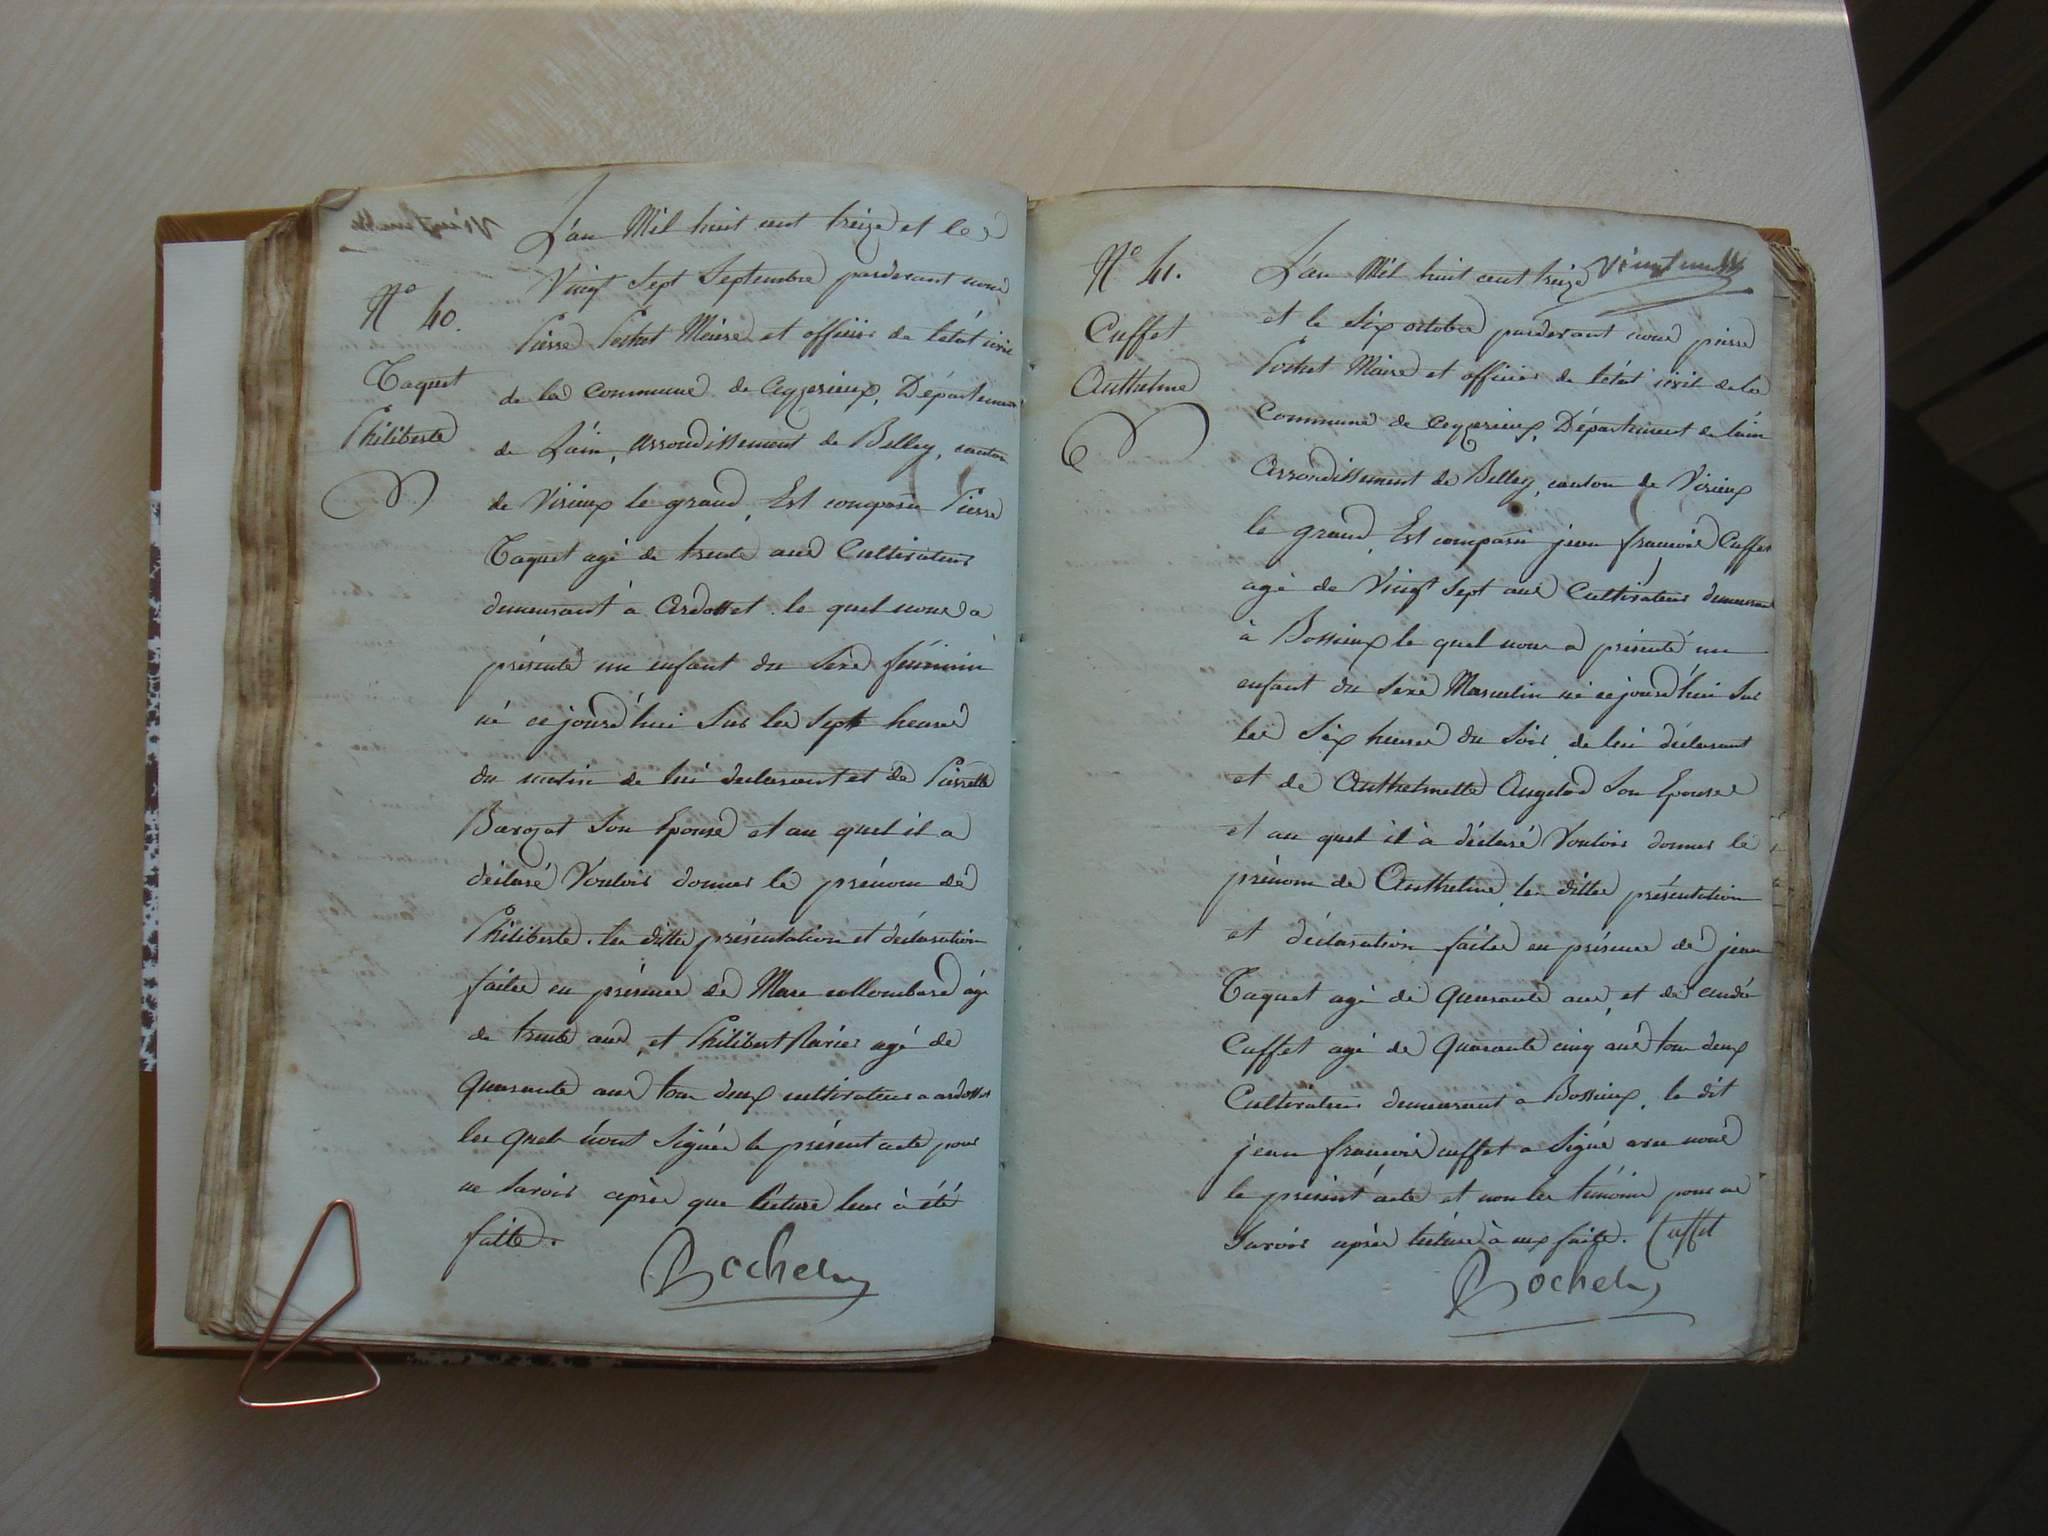 L'an Mil huit cent treize et le
Vingt Sept Septembre pardevant nous
N° 40.
Pierre Pochet Maire et officier de l'état civil
Taquet
de la Commune de Ceyzerieux, Département
Philiberte
de L'ain, arrondissement de Belley, canton
de Virieux le grand, Est comparu Pierre
Taquet agé de trente ans Cultivateur
demeurant à Ardosset le quel nous a
présenté un enfant du Sexe féminin
né ce jourd'hui Sur les Sept heures
du matin de lui declarant et de Pierrette
Barozat Son Epouse et au quel il a
déclaré Vouloir donner le prénom de
Philiberte. les dittes présentation et déclaration
faites en présence de Marc collombard agé
de trente ans, et Philibert Ravier agé de
Quarante ans tous deux cultivateurs a ardosset
les quels n'ont Signés le présent acte pour
ne Savoir après que lecture leur à été
faitte.
Bochet
Vingt un
N° 41.
L'an Mil huit cent treize
et le Six octobre pardevant nous pierre
Cuffet
Pochet Maire et officier de l'état civil de la
Anthelme
Commune de Ceyzerieux, Département de lain
Arrondissement de Belley, canton de Virieux
le grand, Est comparu jean francois Cuffet
agé de Vingt Sept ans Cultivateur demeurant
à Bossieux le quel nous a présenté un
enfant du Sexe Masculin né ce jourd'hui Sur
les Six heures du Soir de lui déclarant
et de Anthelmette Angelod Son Epouse
et au quel il à déclaré Vouloir donner le
prénom de Anthelme, les dittes présentation
et déclaration faites en présence de jean
Taquet agé de Quarante ans, et de andré
Cuffet agé de Quarante cinq ans tous deux
Cultivateurs demeurant a Bossieux, le dit
jean francois cuffet a Signé avec nous
le présent acte et non les témoins pour ne
Savoir après lecture à eux faite. Cuffet
Bochet